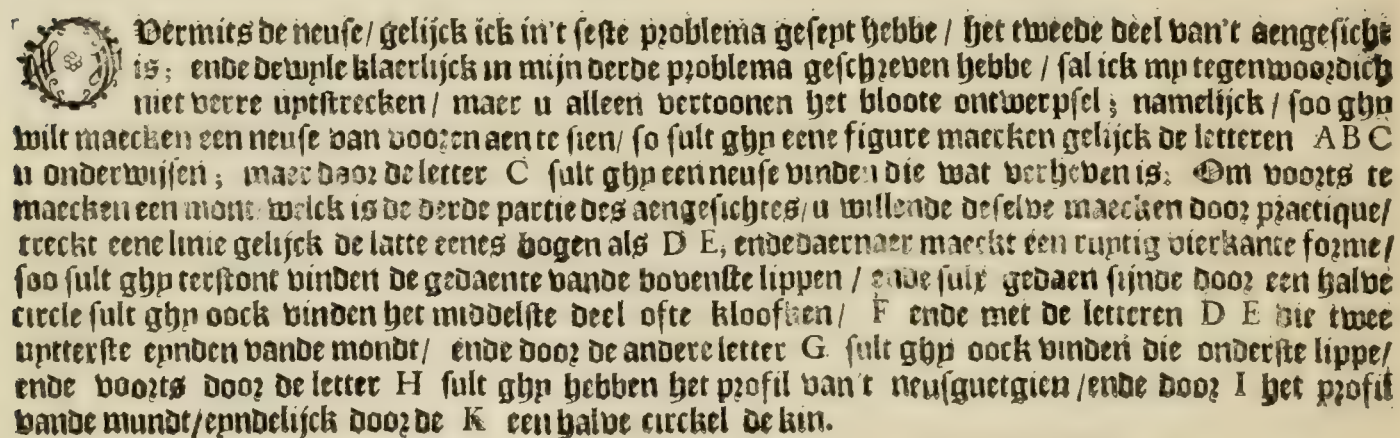 OVermits de neuse/ gelijck ick in't seste problema geseyt hebbe / het tweede deel van't aengesicht
is; ende dewyle klaerlijck in mijn derde problema geschreven hebbe / sal ick my tegenwoordich
niet verre uytstrecken/ maer u alleen vertoonen het bloote ontwerpsel; namelijck / soo ghy
wilt maecken een neuse van vooren aen te sien/ so sult ghy eene figure maecken gelijck de letteren A B C
u onderwijsen; maer door de letter C sult ghy een neuse vinden die wat verheven is. Om voorts te
maecken een mont welck is de derde partie des aengesichtes/ u willende deselve maecken door practique/
treckt eene linie gelijck de latte eenes bogen als D E, ende daernaer maeckt een ruytig vierkante forme/
soo sult ghy terstont vinden de gedaente vande bovenste lippen / ende sulx gedaen sijnde door een halve
circle sult ghy oock vinden het middelste deel ofte kloofken/ F ende met de letteren D E die twee
uytterste eynden vande mondt/ ende door de andere letter G sult ghy oock vinden die onderste lippe/
ende voorts door de letter H sult ghy hebben het profil van't neusguetgien /ende door I het profil
vande mundt/eyndelijck door de K een halve circkel de kin.